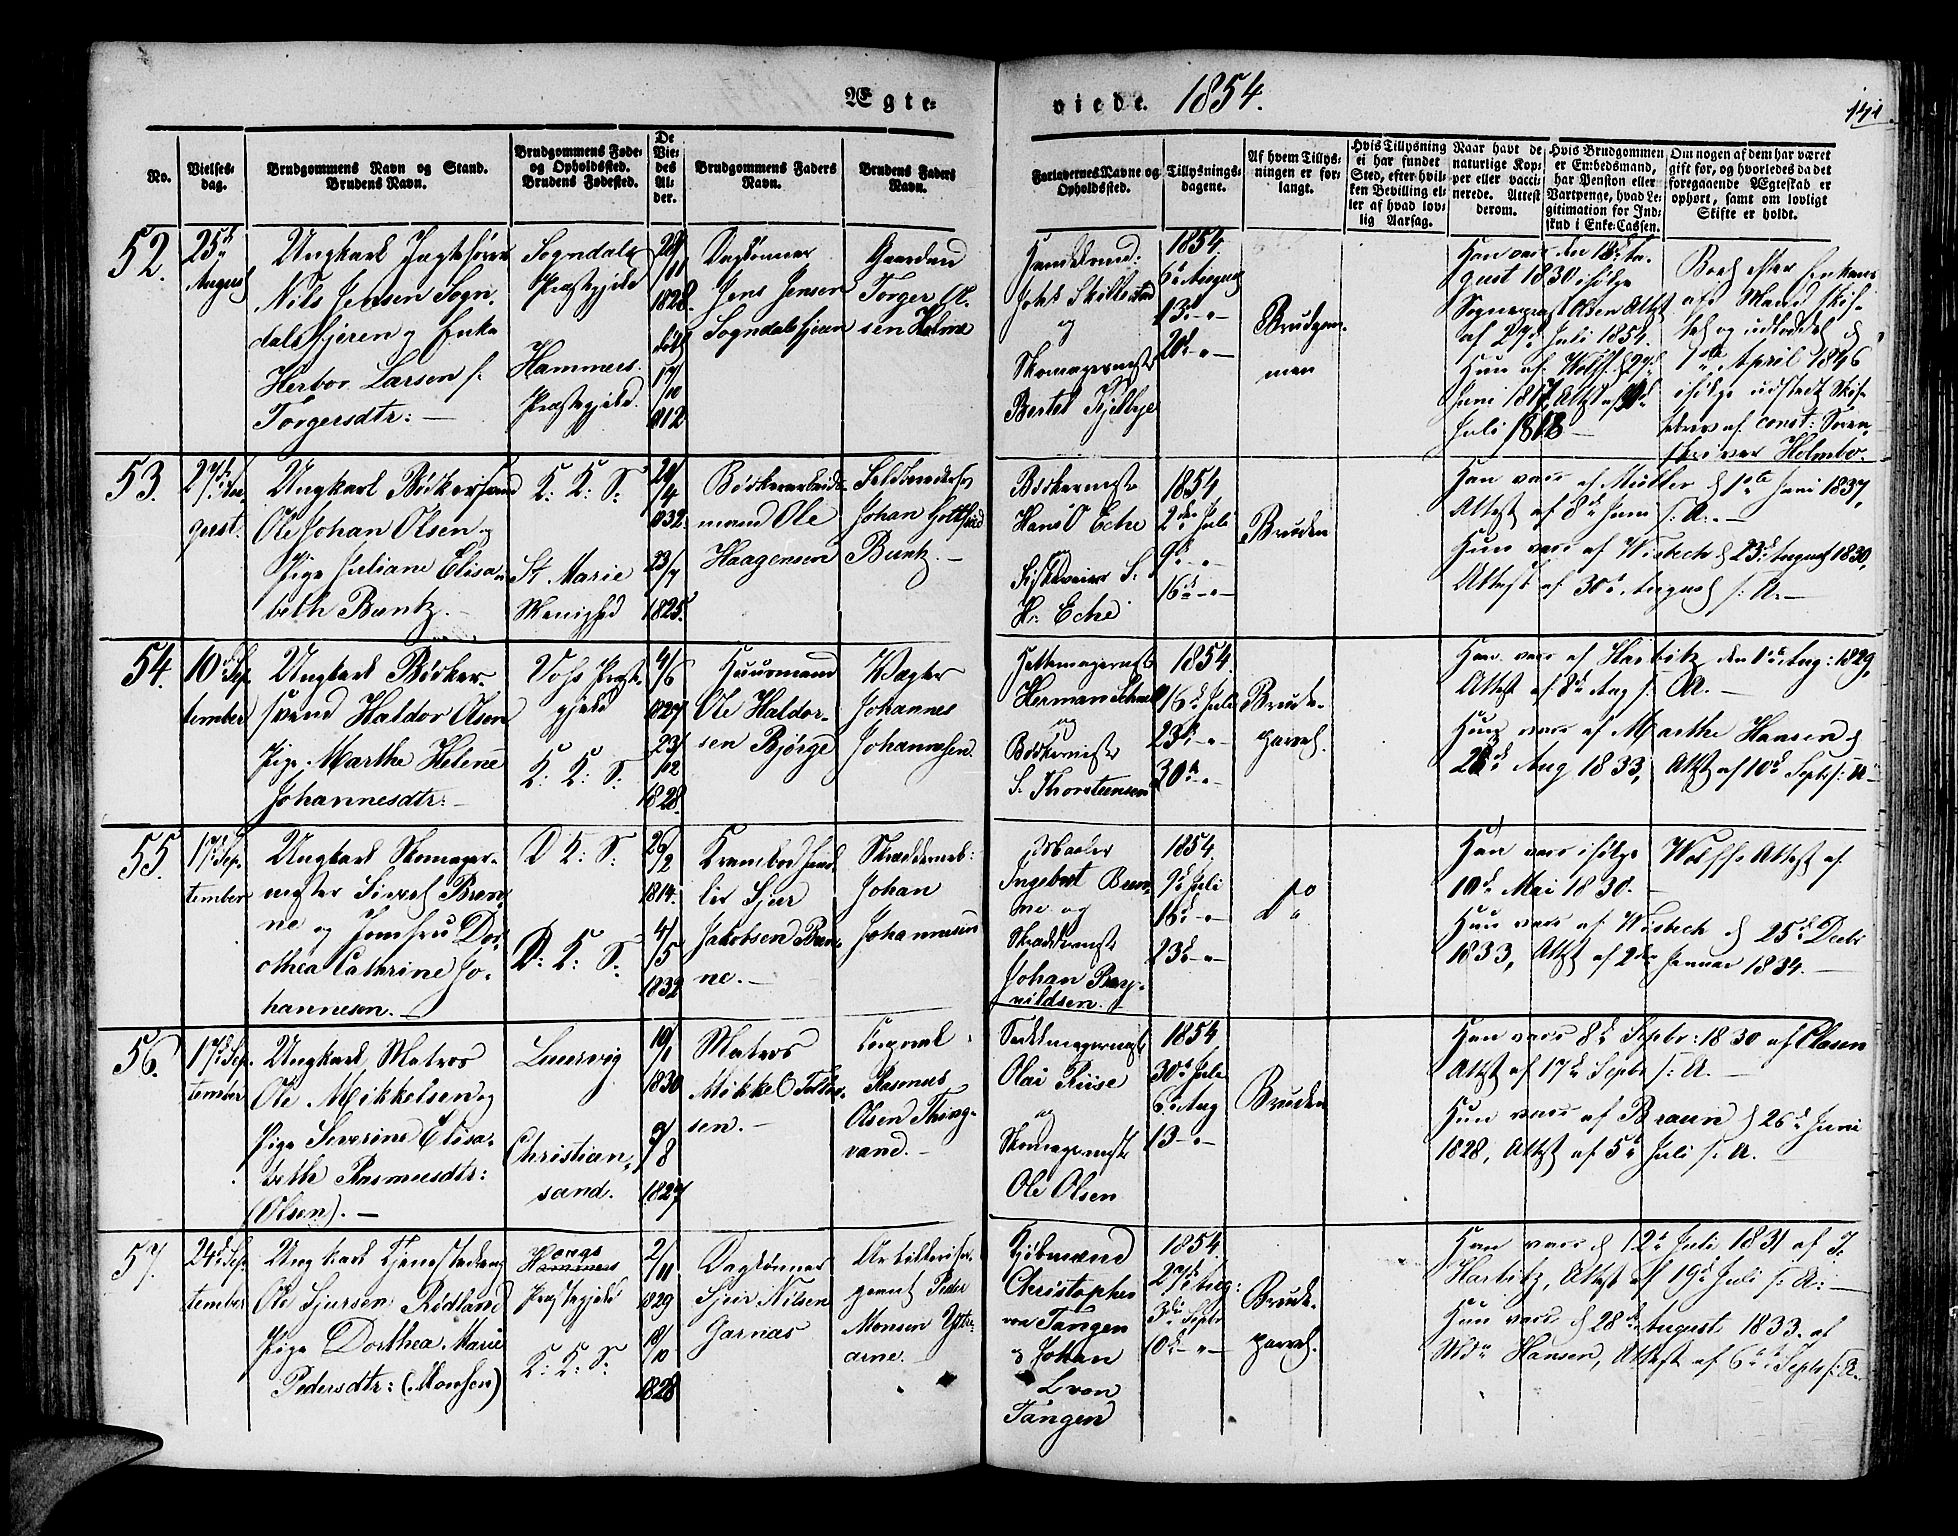 Ægte- viede. 1854. 141
No.
Vielses-
dag.
Brudgommens Navn og Stand.
Brudens Navn.
Brudgommens Føde-
og Opholdssted.
Brudens Fødested.
De
Vie-
des
Al-
der.
Brudgommens Faders
Navn.
Brudens Faders
Navn.
Forlovernes Navne og
Opholdssted.
Tillysnings-
dagene.
Af hvem Tillys-
ningen er for-
langt.
Hvis Tillysning
ei har fundet
Sted, efter hvil-
ken Bevilling el-
ler af hvad lov-
lig Aarsag.
Naar havt de
naturlige Kop-
per eller vacci-
nerede. Attest
derom.
Hvis Brudgommen
er Embedsmand,
har Pension eller
Vartpenge, hvad Le-
gitimation for Ind-
skud i Enke-Cassen.
Om nogen af dem har været
gift før, og hvorledes da det
foregaaende Ægteskab er
ophørt, samt om lovligt
Skifte er holdt.
52.
25de
August
Ungkarl Jagtfører
Nils Jensen Sogn-
dalsfjeren og Enke
Herbor Larsen f:
Torgersdtr: —
Sogndals
Præstegjeld
Hammers
Præstegjeld.
28/
11
1828.
født
17/
10
1812
Daglønner
Jens Jensen
Sogndalsfjeren
Gaardm
Torger Ol-
sen Holme
Handelsmd:
Johs Skillestad
og
Skomagermestr
Bertel Kjelbye
1854.
6te August
13de - " -
20de - " -
Brudgom-
men
gust 1830 ifølge
Sogneprest Attest
af 29de Juli 1854.
Hun af Wolff d 27de
Juni 1817, Attest af
Juli 1818 —
Boet efter Enkens
afd Mand skif-
tet og udloddet d
1ste April 1846
ifølge udstedt Skif-
tebrev af const: Soren-
skriver Holmbo.
53.
27de Au-
gust.
Ungkarl Bødkersvend
Ole Johan Olsen og
Pige Juliane Elisa-
beth Buntz. —
K: K: S:
St. Marie
Menighed
24/
4
1832
23/
7
1825.
Bødkerarbeids-
mand Ole
Haagensen
Feldbereder
Johan Gottfried
Buntz. —
Bødkermestr
Hans O Eche
S:
H: Eche
1854
2den Juli
9de - " -
16de - " -
Bruden
Han vacc af Müller d 1ste Juni 1837,
Attest af 8de Juni s: A. —
Hun vacc af Wisbech d 23de August 1830,
Attest af 30te August s: A. —
54.
10de Sep-
tember
Ungkarl Bødker-
svend Haldor Olsen
Pige Marthe Helene
Johannesdtr: —
Voss Præst-
gjeld
K: K: S:
4/
6
1827
23/
12
1828.
Huusmand
Ole Haldor-
sen Bjørge
Vægter
Johannes
Johannesen.
Hattemagermestr
Herman
og
Bødkermestr
S. Thorsteensen
1854.
16de Juli
23de - " -
30te - " -
Brude-
parret.
Han vacc af Harbitz den 1ste Aug: 1829,
Attest af 8de Aug s: A. —
Hun vacc af Marthe Hansen d
28de Aug 1833, Attest af 10de Septr s: A —
55.
17de Sep-
tember
Ungkarl Skomager-
mester Sivert Brun-
ne og Jomfru Dor-
othea Cathrine Jo-
hannesen. —
D K: S:
D: K: S:
26/
2
1814.
4/
5
1832
Kramboehand-
ler Sjur
Jakobsen Brun-
ne. —
Skræddermestr:
Johan
Johannesen
Maler
Ingebret Brun-
ne og
Skræddermestr
Johan
1854.
9de Juli
16de - " -
23de - " -
Do
Han vacc ifølge Wolffs Attest af
10de Mai 1830. —
Hun vacc af Wisbech d 25de Decbr
1833, Attest af 2den Januar 1834. —
56.
17de Sep-
tember
Ungkarl Matros
Ole Mikkelsen og
Pige Severine Elisa-
beth Rasmusdtr:
(Olsen). —
Laurvig
Christian-
sand.
19/
1
1830
7/
8
1827
Matros
Mikkel
sen. —
Rasmus
Olsen Thing-
vand. —
Sadelmagermestr
Olai Riise
og
Skomagermestr
Ole Olsen
1854
30te Juli
6te Aug
13 - " -
Bruden
Han vacc 8de Septbr: 1830 af Clasen
Attest af 17de Septbr s: A. —
Hun vacc af Braun d 26de Juni
1828, Attest af 5te Juli s: A. —
57.
24de Sep-
tember
Ungkarl
Ole Sjursen Rødland
Pige Dorthea Marie
Pedersdtr: (Monsen)
Hougs
Hammers
Præstegjeld
K: K: S:
2/
11
1829
18/
10
1828
Daglønner
Sjur Nilsen
Garnæs
Artillerisser-
geant Peder
Monsen Ytre-
arne. —
Kjøbmænd
Christopher
von Tangen
og Johan
L von
Tangen
1854.
27de Aug:
3die Septbr
10de - " -
Brude-
parret.
Han vacc d 12te Juli 1831 af J.
Harbitz, Attest af 19de Juli s: A: —
Hun vacc d 28de August 1833. af
Mdm Hansen, Attest af 6te Septr s: A. —